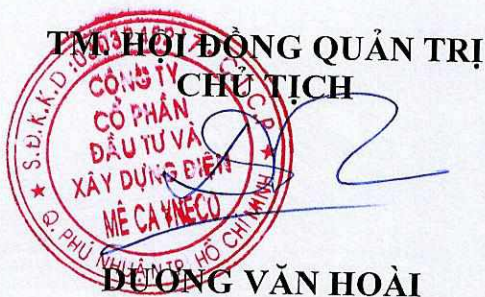 TM. HỘI ĐỒNG QUẢN TRỊ
CHỦ TỊCH
CÔNG TY
CỔ PHẦN
ĐẦU TƯ VÀ
XÂY DỰNG ĐIỆN
MÊ CA VNECO
Q. PHÚ NHUẬN TP. HỒ CHÍ MINH
DƯƠNG VĂN HOÀI